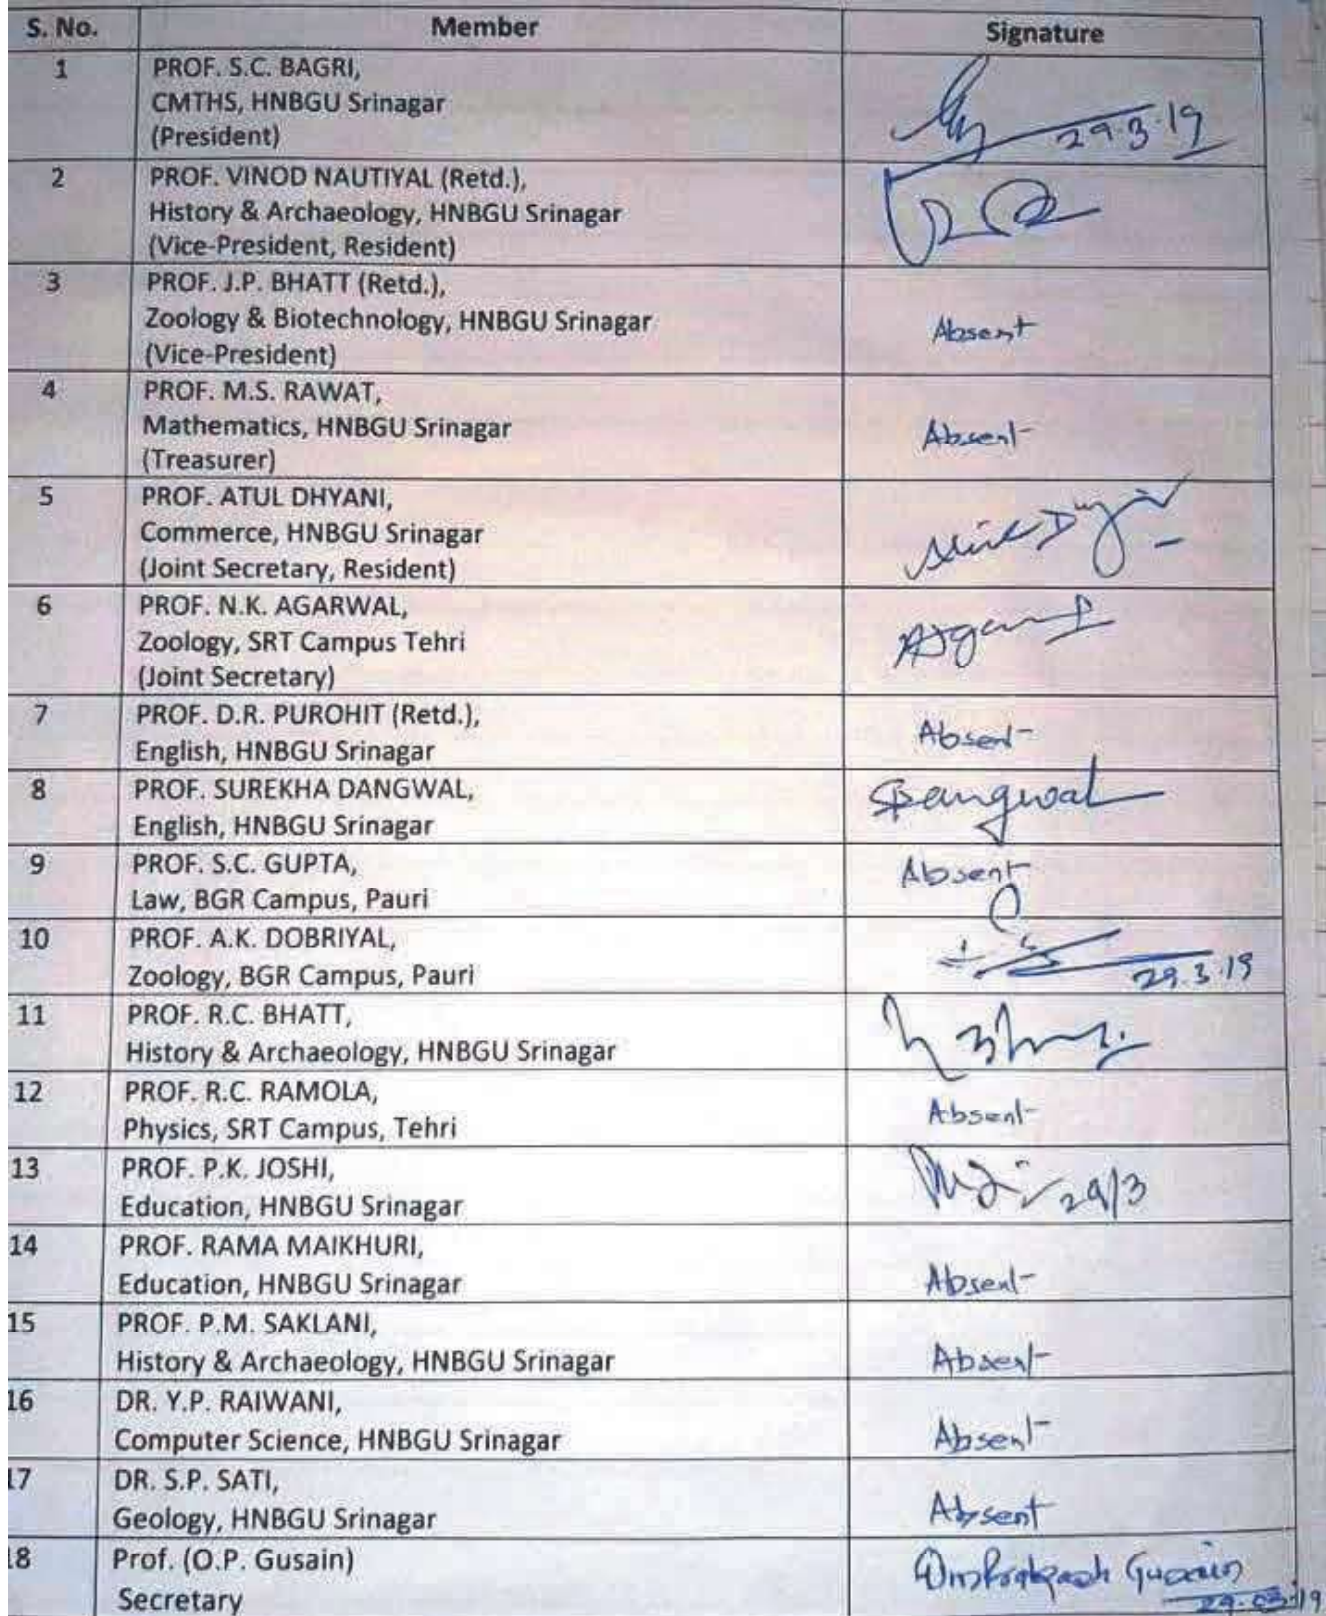 S. No. Member Signature
1 PROF. S.C. BAGRI,
CMTHS, HNBGU Srinagar
(President)
29.3.19
2 PROF. VINOD NAUTIYAL (Retd.),
History & Archaeology, HNBGU Srinagar
(Vice-President, Resident)
3 PROF. J.P. BHATT (Retd.),
Zoology & Biotechnology, HNBGU Srinagar
Absent
(Vice-President)
4 PROF. M.S. RAWAT,
Mathematics, HNBGU Srinagar
Absent
(Treasurer)
5 PROF. ATUL DHYANI,
Commerce, HNBGU Srinagar
(Joint Secretary, Resident)
6 PROF. N.K. AGARWAL,
Zoology, SRT Campus Tehri
(Joint Secretary)
7 PROF. D.R. PUROHIT (Retd.),
Absent
English, HNBGU Srinagar
8 PROF. SUREKHA DANGWAL,
SDangwal
English, HNBGU Srinagar
9 PROF. S.C. GUPTA,
Absent
Law, BGR Campus, Pauri
10 PROF. A.K. DOBRIYAL,
Zoology, BGR Campus, Pauri
29.3.19
11 PROF. R.C. BHATT,
History & Archaeology, HNBGU Srinagar
12 PROF. R.C. RAMOLA,
Absent
Physics, SRT Campus, Tehri
13 PROF. P.K. JOSHI,
29/3
Education, HNBGU Srinagar
14 PROF. RAMA MAIKHURI,
Education, HNBGU Srinagar
Absent
15 PROF. P.M. SAKLANI,
History & Archaeology, HNBGU Srinagar
Absent
16 DR. Y.P. RAIWANI,
Computer Science, HNBGU Srinagar
Absent
17 DR. S.P. SATI,
Geology, HNBGU Srinagar
Absent
18 Prof. (O.P. Gusain)
Omprakash Gusain
Secretary
29.03.19